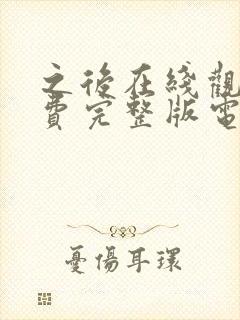 之後在綫觀
費完整版電
憂傷耳環